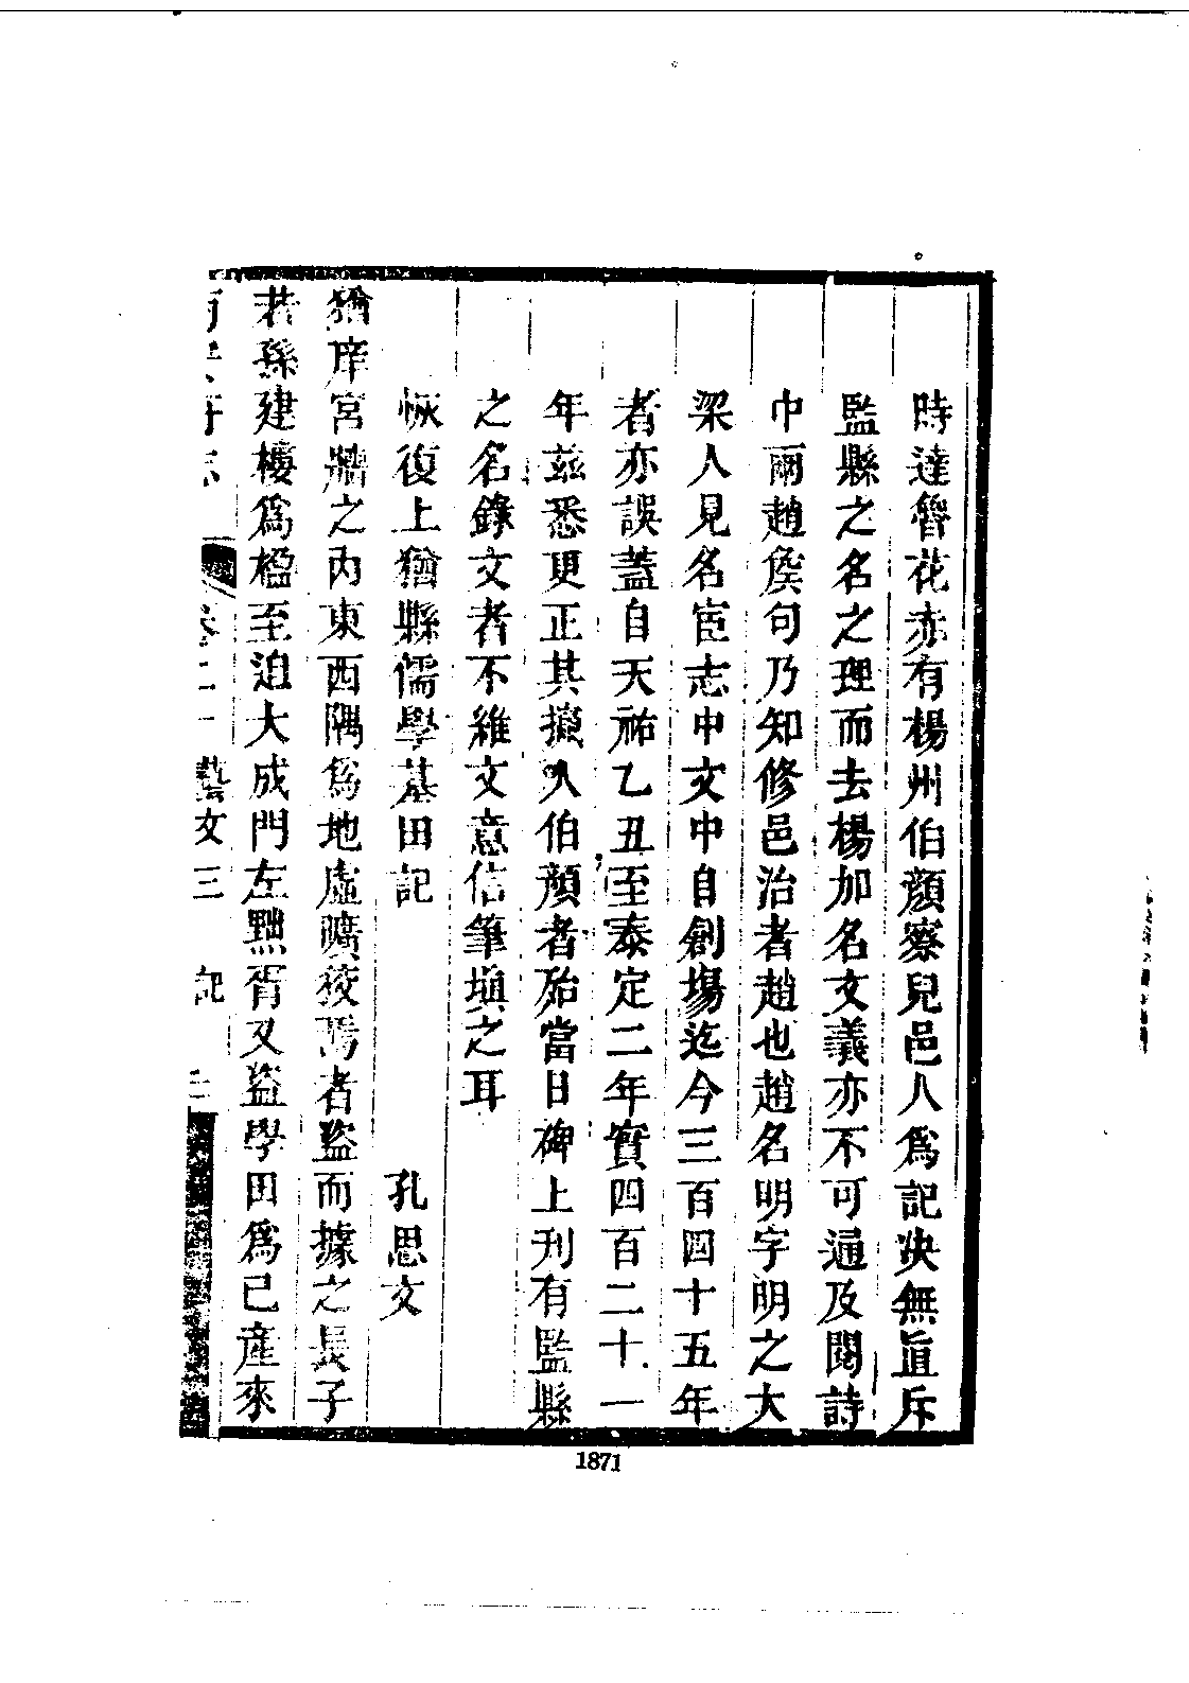 時達魯花赤有楊州伯顏察兒邑人為記決無直斥
監縣之名之理而去楊加名文義亦不可通及閱詩
中兩趙侯句乃知修邑治者趙也趙名明字明之大
梁人見名宦志中文中自創塲迄今三百四十五年
者亦誤蓋自天祐乙丑至泰定二年實四百二十一
年茲悉更正其攙入伯顏者殆當日碑上刊有監縣
之名錄文者不維文意信筆塡之耳
恢復上猶縣儒學基田記
孔思文
猶庠宮鼎之內東西隅爲地虛曠狡焉者盜而據之長子
若孫建樓爲楹至迫大成門左黜胥又盜學田爲已產來
卷二十藝文三 記
1871